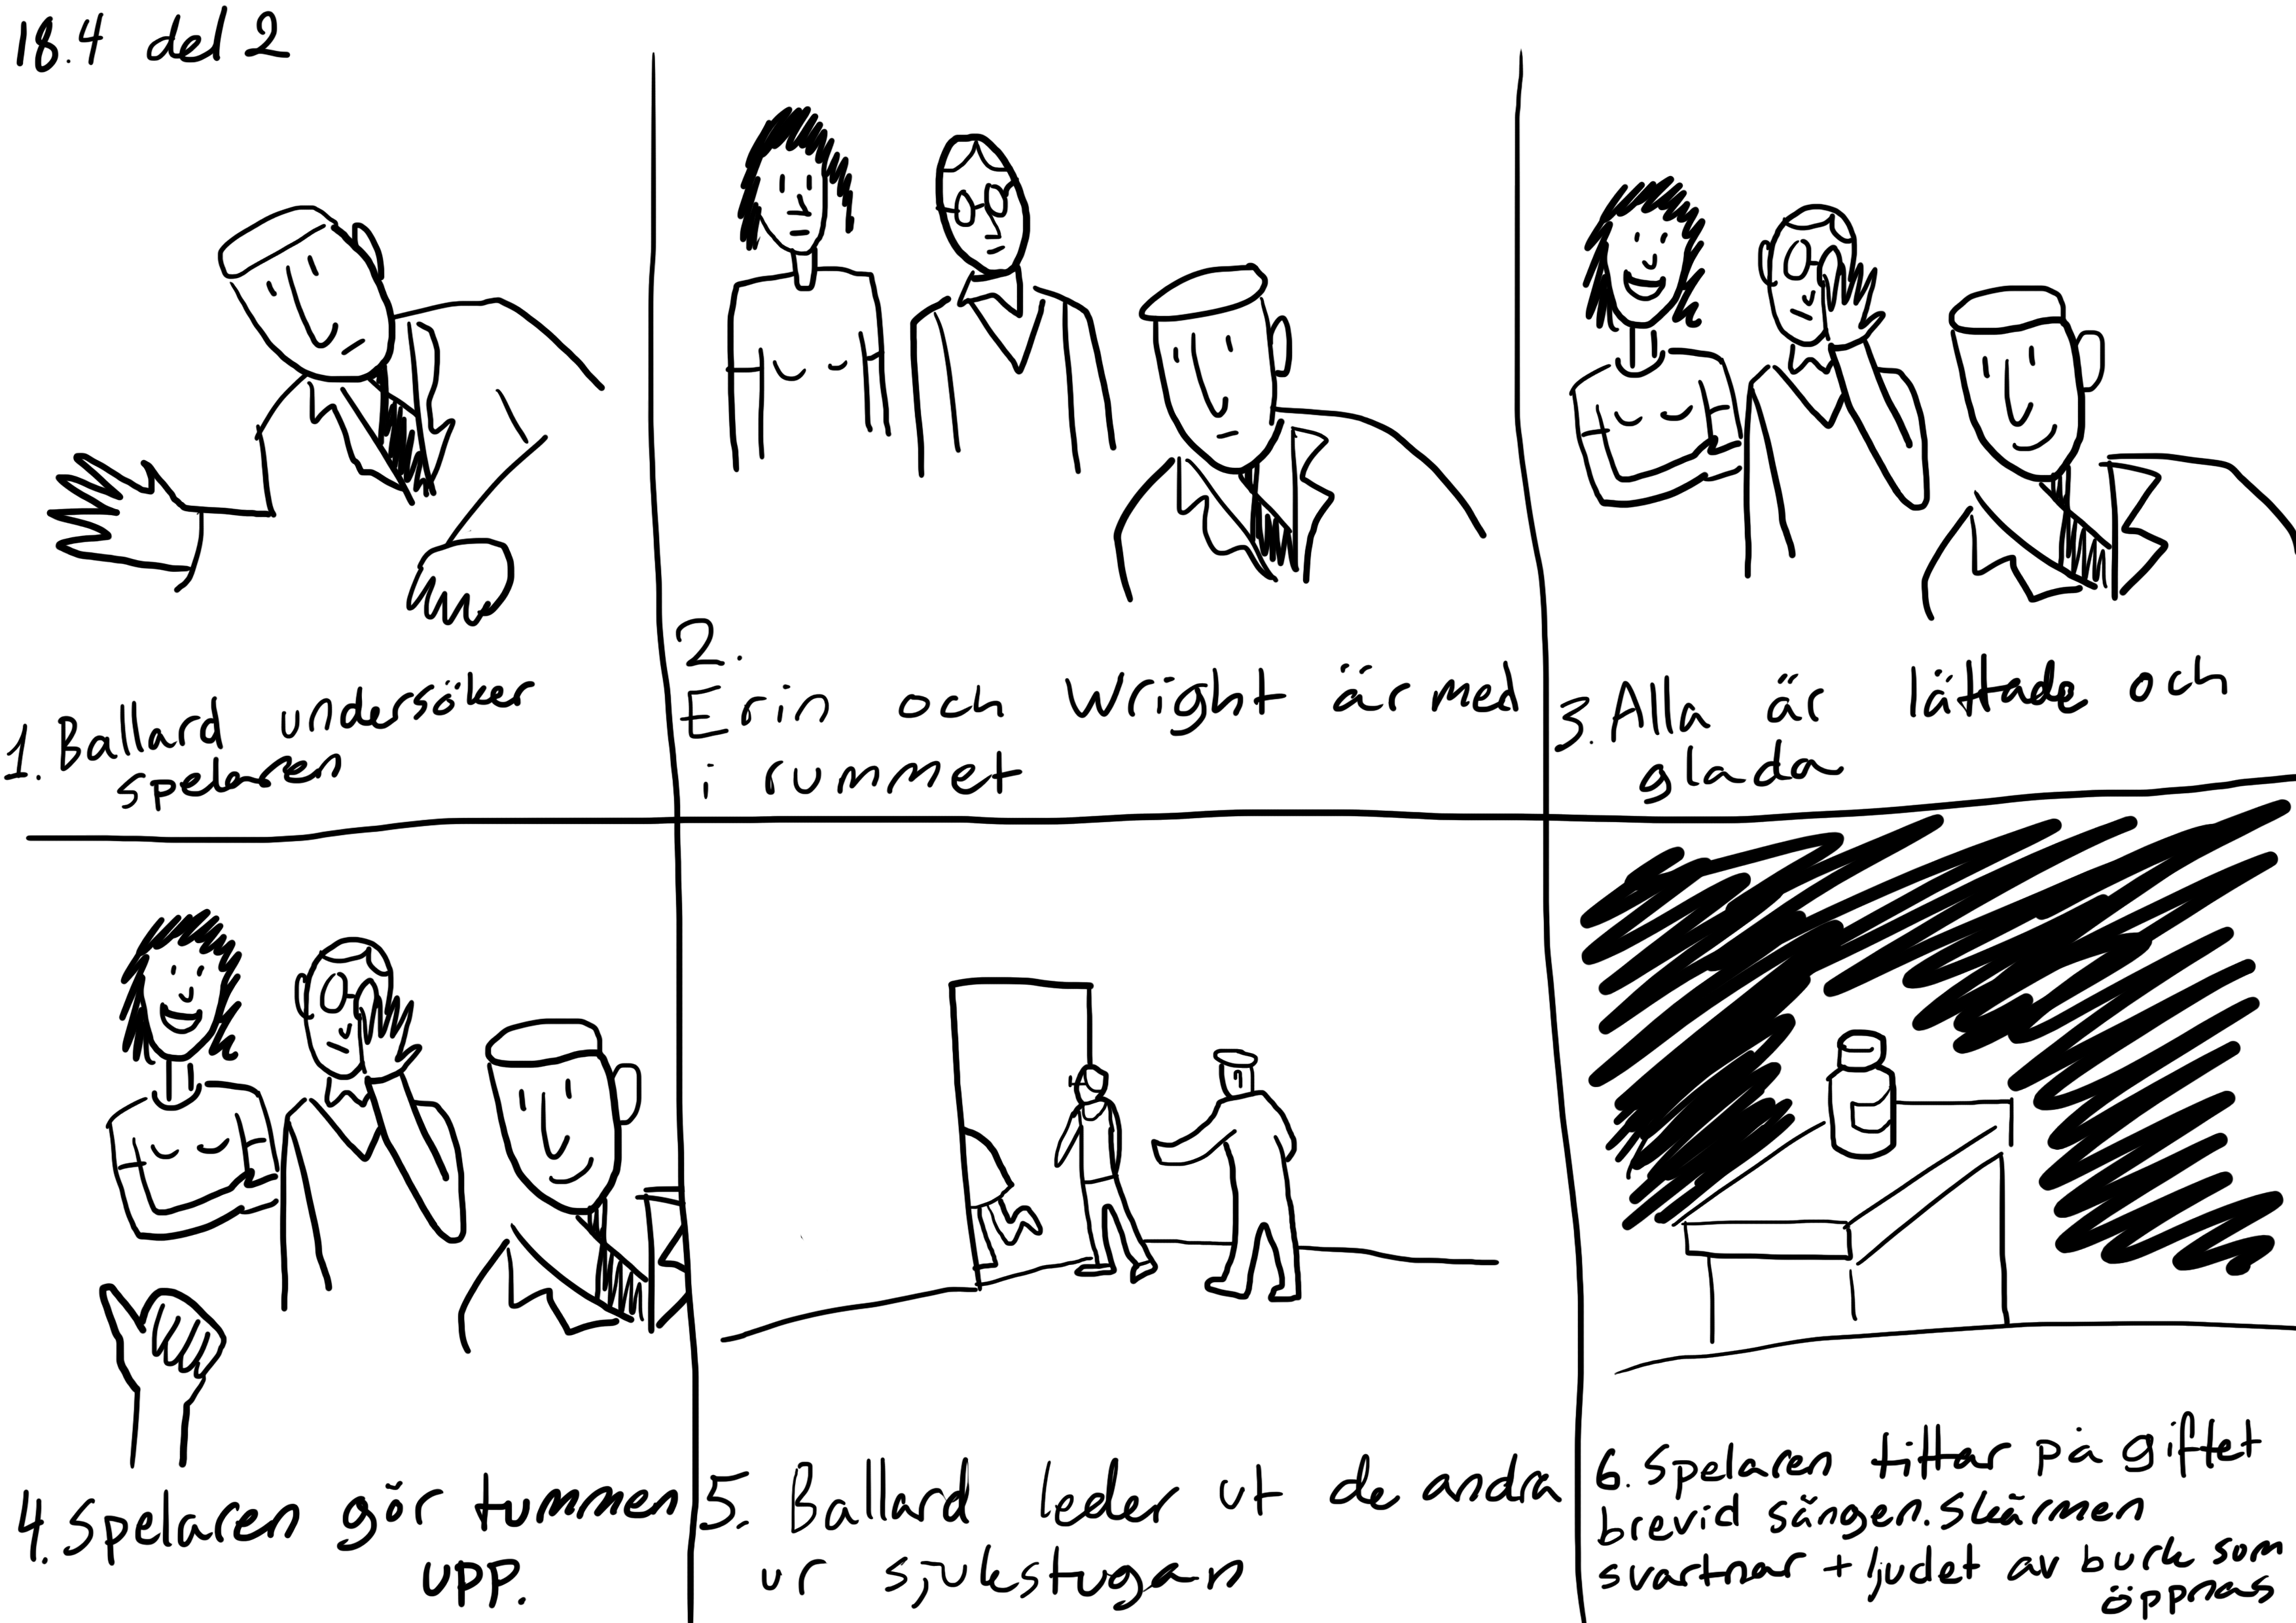 18.4 del 2
1. Ballard undersöker
spelaren
2.
Erin och Wright är med
i rummet
3. Alla är lättade och
glada
4. Spelaren gör tummen
upp.
5. Ballard leder ut de andra
ur sjukstugan
6. Spelaren tittar på giftet
brevid sängen. Skärmen
svartnar + ljudet av burk som
öppnas